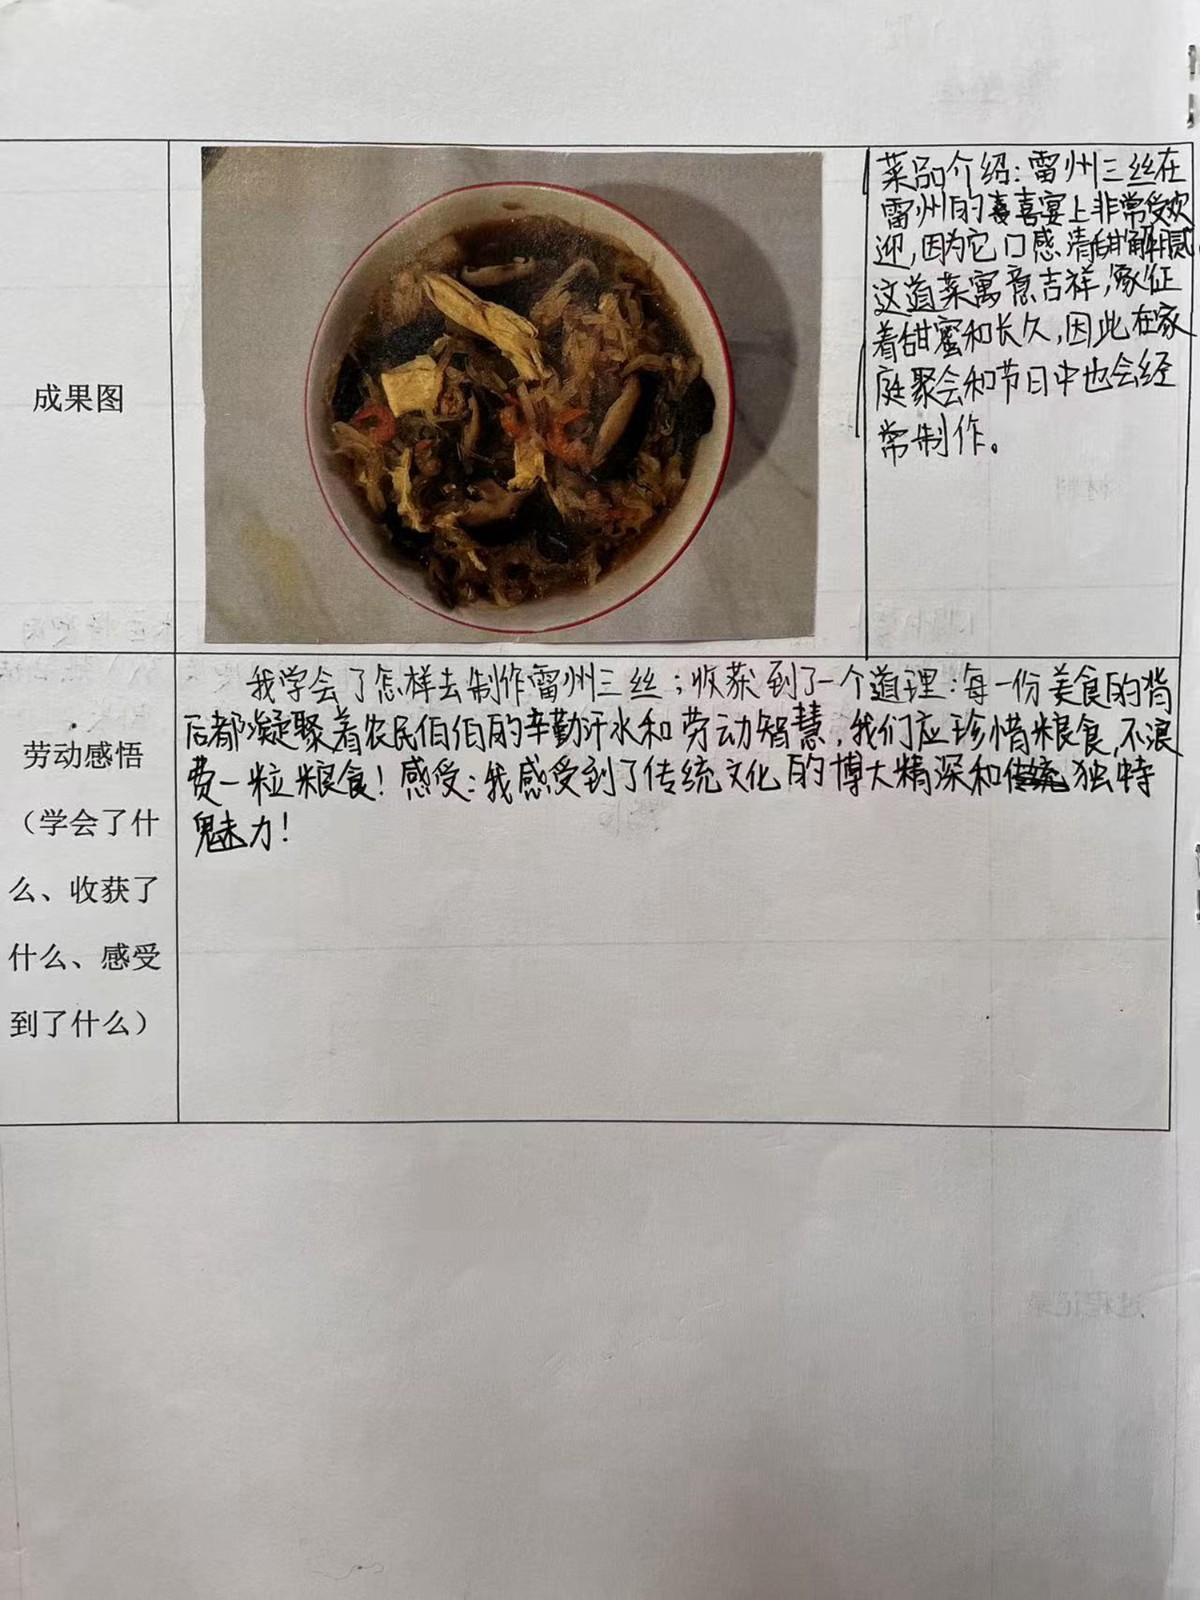 成果图
菜品介绍：雷州三丝在
雷州的喜宴上非常受欢
迎，因为它口感清甜解腻，
这道菜寓意吉祥，象征
着甜蜜和长久，因此在家
庭聚会和节日中也会经
常制作。
劳动感悟
（学会了什
么、收获了
什么、感受
到了什么）
我学会了怎样去制作雷州三丝；收获到了一个道理：每一份美食的背
后都凝聚着农民伯伯的辛勤汗水和劳动智慧，我们应珍惜粮食，不浪
费一粒粮食！感受：我感受到了传统文化的博大精深和独特
魅力！
过程记录